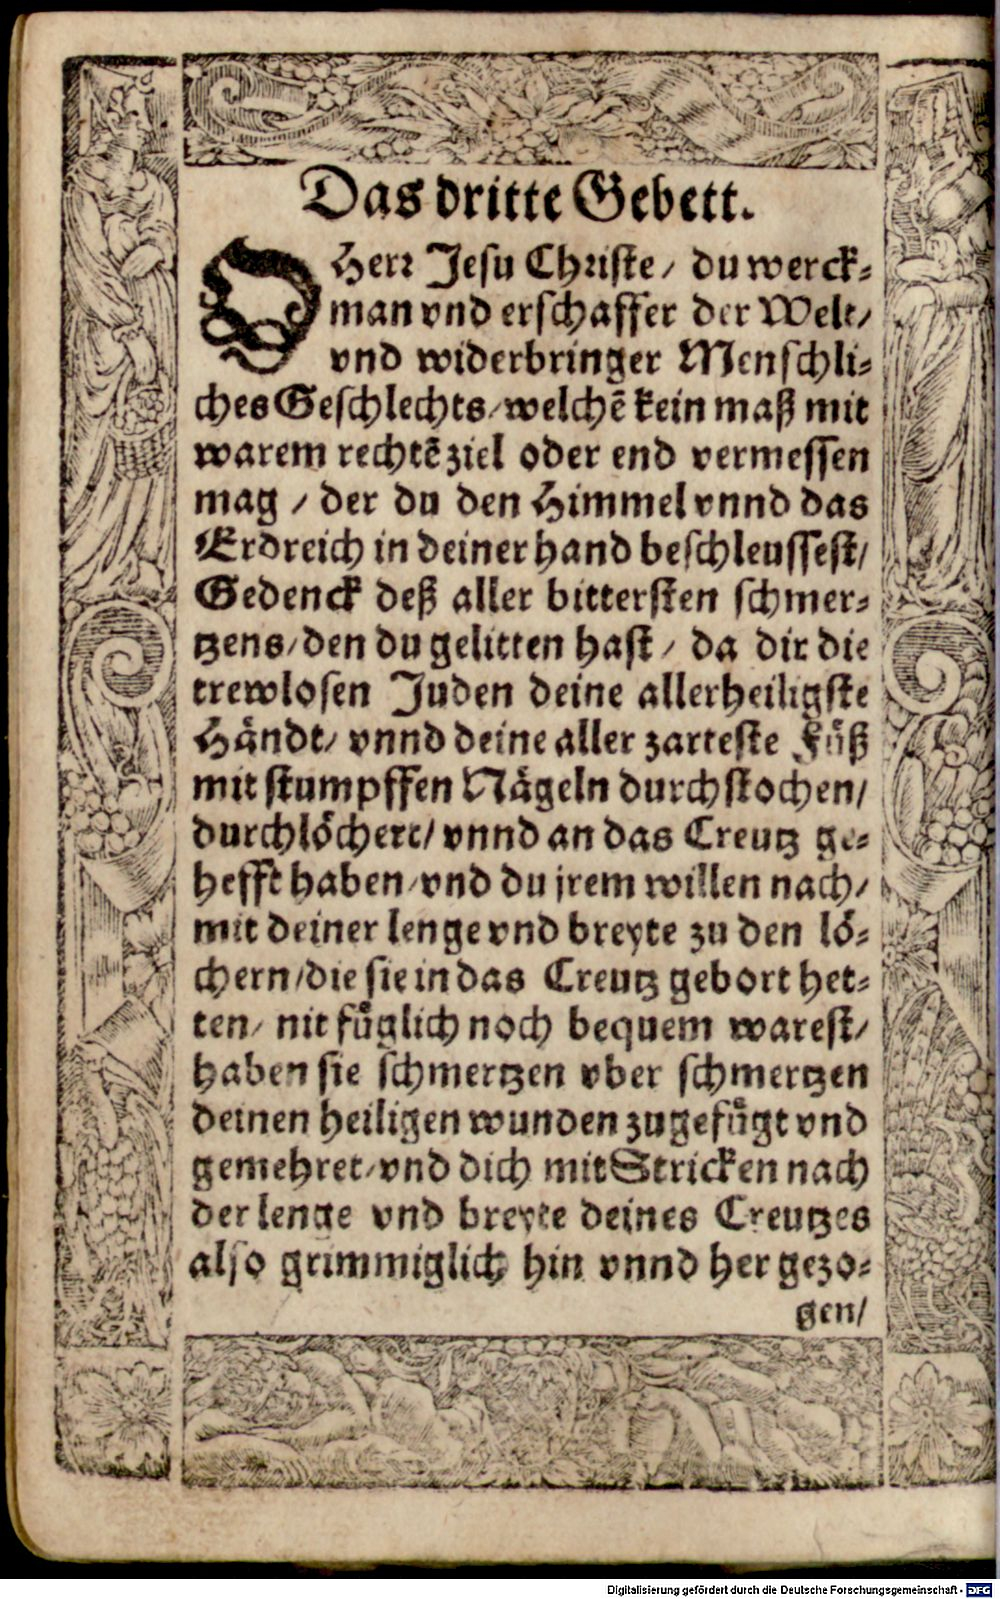 Das dritte Gebett.
O Herr Jesu Christe/ du werck-
man vnd erschaffer der Welt/
vnd widerbringer Menschli-
ches Geschlechts/welchē kein maß mit
warem rechtē ziel oder end vermessen
mag / der du den Himmel vnnd das
Erdreich in deiner hand beschleussest/
Gedenck deß aller bittersten schmer-
tzens/den du gelitten hast / da dir die
trewlosen Juden deine allerheiligste
Händt/ vnnd deine aller zarteste Füß
mit stumpffen Nägeln durchstochen/
durchlöchert/ vnnd an das Creutz ge-
hefft haben/vnd du jrem willen nach/
mit deiner lenge vnd breyte zu den lö-
chern/die sie in das Creutz gebort het-
ten/ nit füglich noch bequem warest/
haben sie schmertzen vber schmertzen
deinen heiligen wunden zugefügt vnd
gemehret/vnd dich mit Stricken nach
der lenge vnd breyte deines Creutzes
also grimmiglich hin vnnd her gezo-
gen/
Digitalisierung gefördert durch die Deutsche Forschungsgemeinschaft - DFG